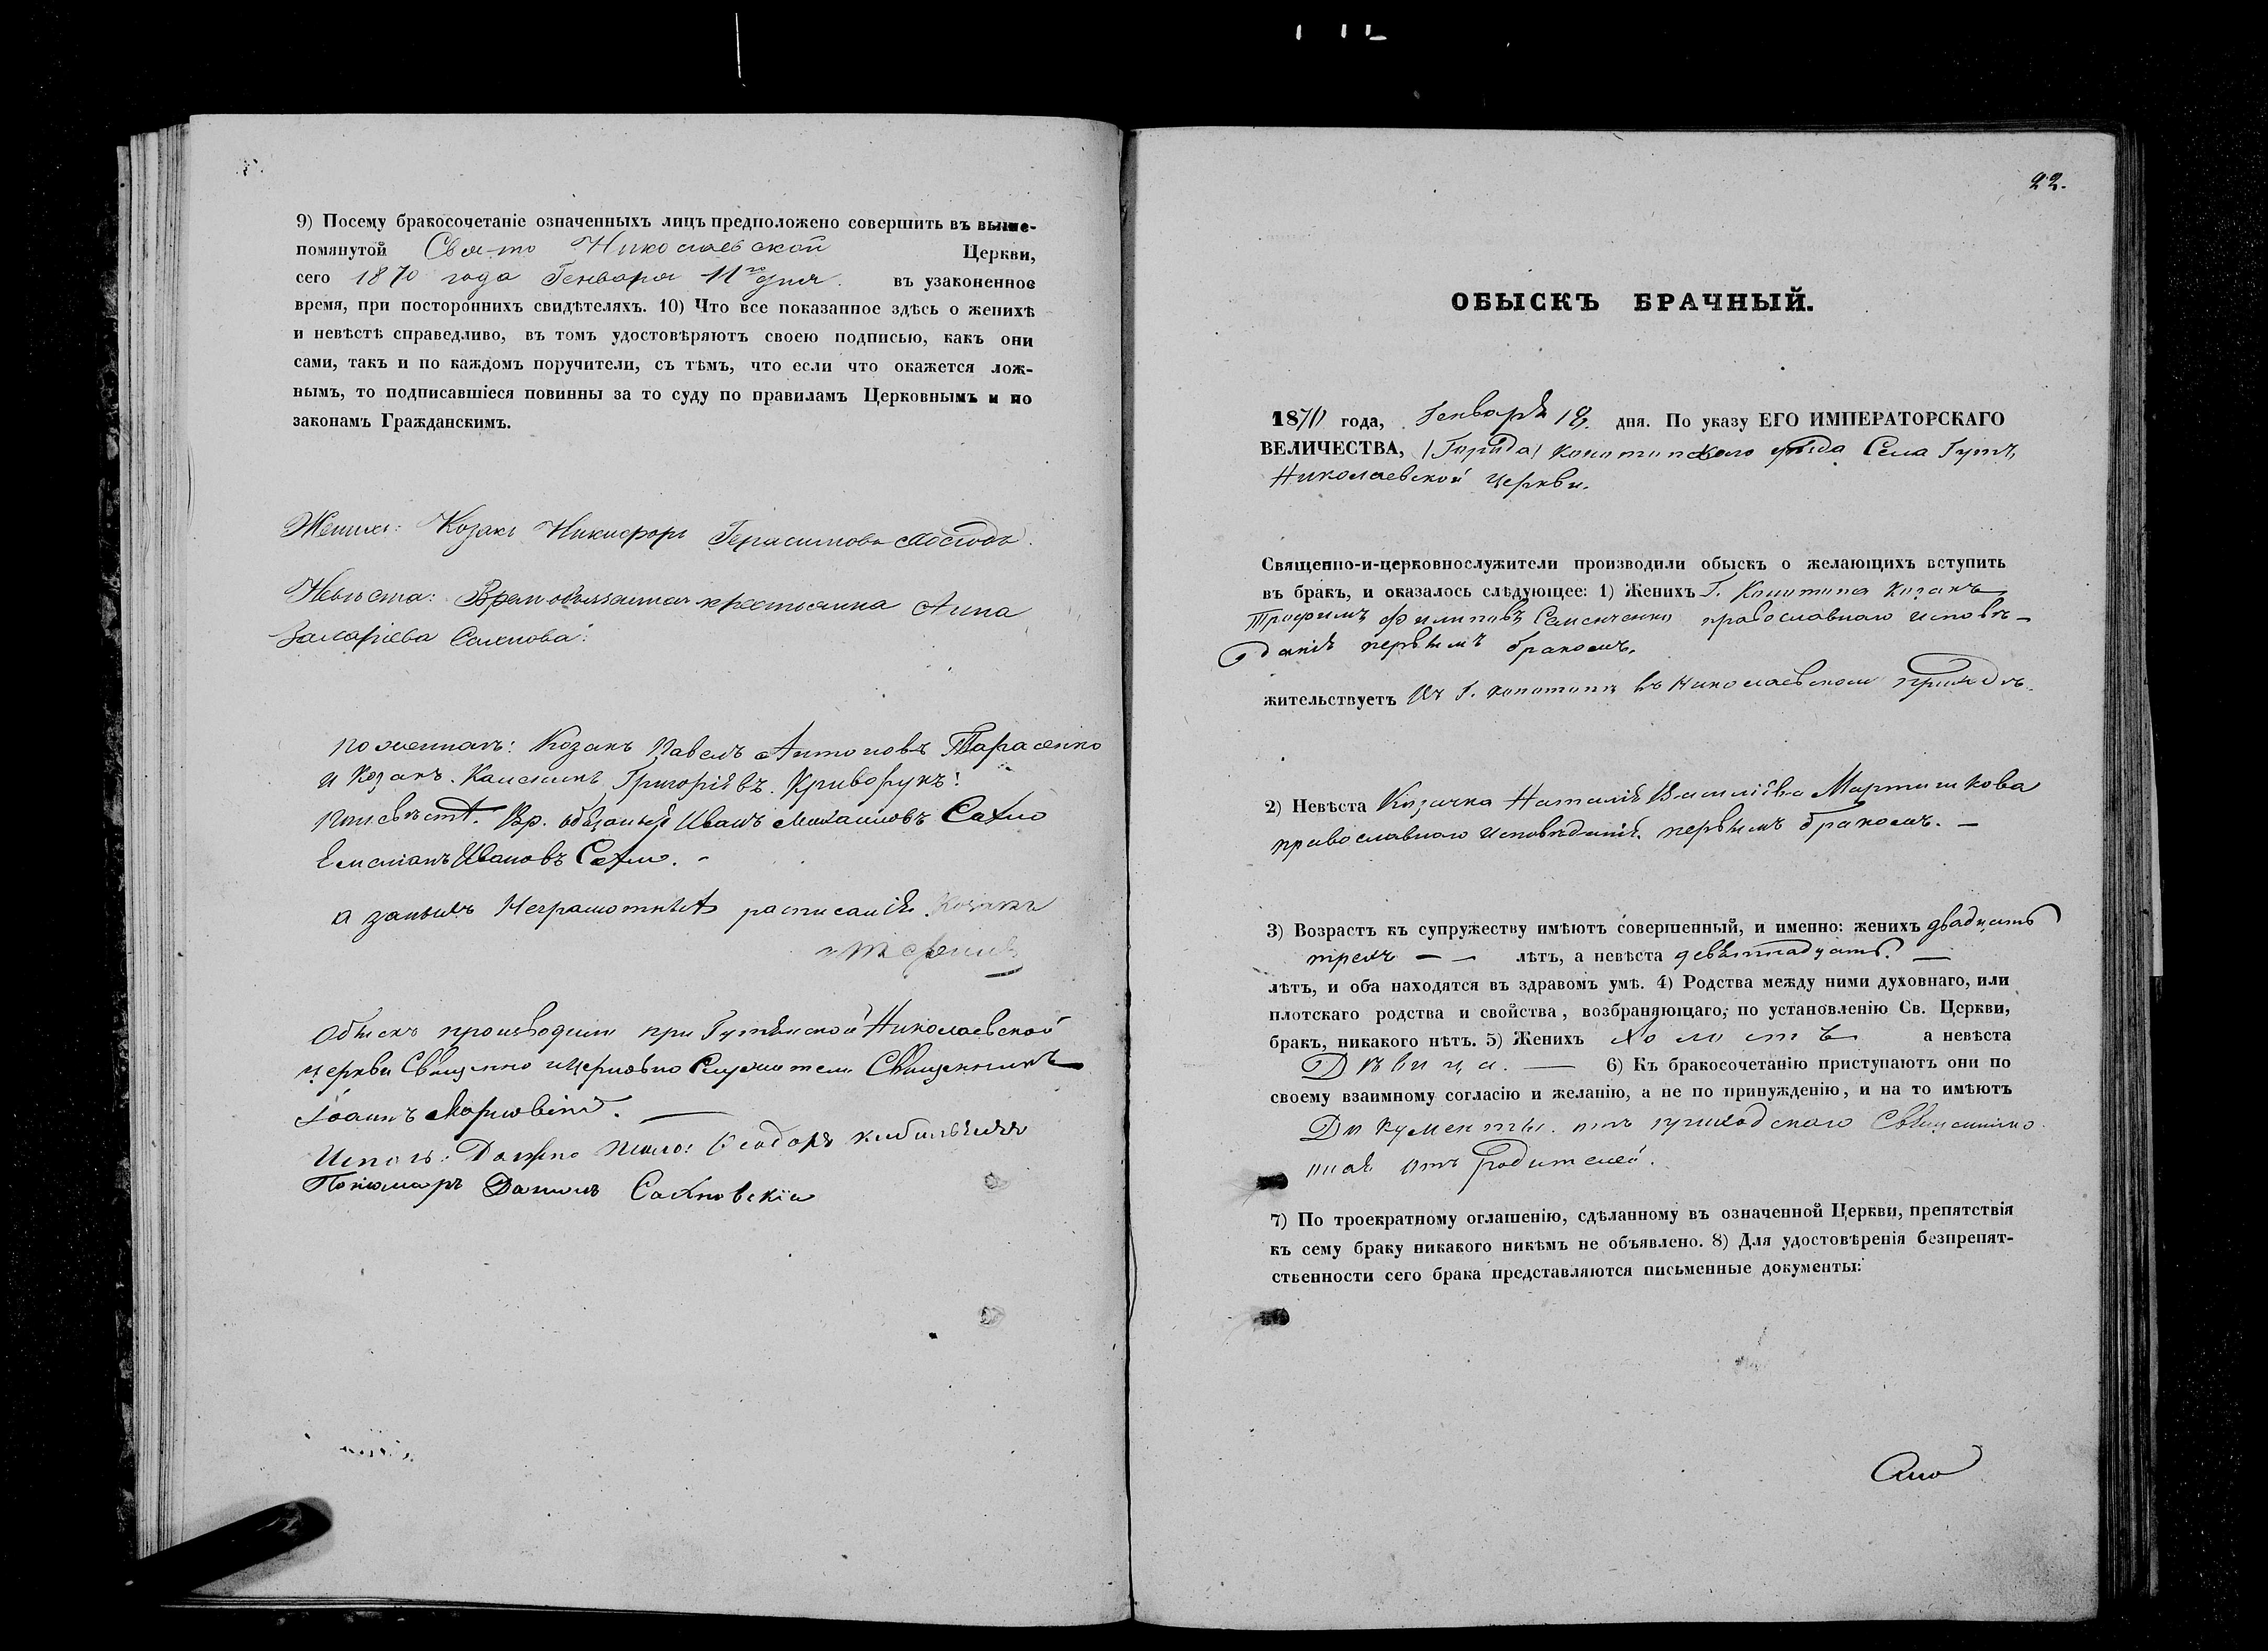 9) Посему бракосочетаніе означенныхъ лицъ предположено совершить въ выше-
помянутой Свято Николаевской Церкви,
сего 1870 года Генваря 11го дня. въ узаконенное
время, при постороннихъ свидѣтеляхъ. 10) Что все показанное здѣсь о женихѣ
и невѣстѣ справедливо, въ томъ удостовѣряютъ своею подписью, какъ они
сами, такъ и по каждомъ поручители, съ тѣмъ, что если что окажется лож-
нымъ, то подписавшіеся повинны за то суду по правиламъ Церковнымъ и по
законамъ Гражданскимъ.
Женихъ: Козакъ Никифоръ Герасимовъ
Невѣста: крестьянка Анна
Захаріева
По женихѣ: Козакъ Павелъ Антоновъ Тарасенко
и Козакъ. Григоріевъ. Криворукъ:
Вр. обязаный Иванъ Михаиловъ Сахно
Емеліанъ Ивановъ Сахно. -
а за Неграмотныхъ Козакъ
Обыскъ производили при Николаевской
церкви Священно и Церковно Служители Священникъ
Іоаннъ
Должно Ѳеодоръ
Пономарь Сахновскій
22.
ОБЫСКЪ БРАЧНЫЙ.
1870 года, Генваря 18. дня. По указу ЕГО ИМПЕРАТОРСКАГО
ВЕЛИЧЕСТВА, (Города) Конотопского уѣзда Села Гутъ,
Николаевской церкви.
Священно-и-церковнослужители производили обыскъ о желающихъ вступить
въ бракъ, и оказалось слѣдующее: 1) Женихъ Г. Конотопа Козакъ
Трофимъ Филиповъ Семенченко православного исповѣ-
данія первымъ бракомъ.
жительствуетъ Въ Г. Конотопѣ въ Николаевскомъ приходѣ.
2) Невѣста Козачка Наталія Василіева Мартишкова
православного исповѣданія. первымъ бракомъ. -
3) Возрастъ къ супружеству имѣютъ совершенный, и именно: женихъ двадцать
трехъ - - лѣтъ, а невѣста девятнадцать. -
лѣтъ, и оба находятся въ здравомъ умѣ. 4) Родства между ними духовнаго, или
плотскаго родства и свойства, возбраняющаго, по установленію Св. Церкви,
бракъ, никакого нѣтъ. 5) Женихъ холостъ а невѣста
Дѣвица. - 6) Къ бракосочетанію приступаютъ они по
своему взаимному согласію и желанію, а не по принужденію, и на то имѣютъ
Документы. отъ приходского
отъ родителей.
7) По троекратному оглашенію, сдѣланному въ означенной Церкви, препятствія
къ сему браку никакого никѣмъ не объявлено. 8) Для удостовѣренія безпрепят-
ственности сего брака представляются письменные документы: